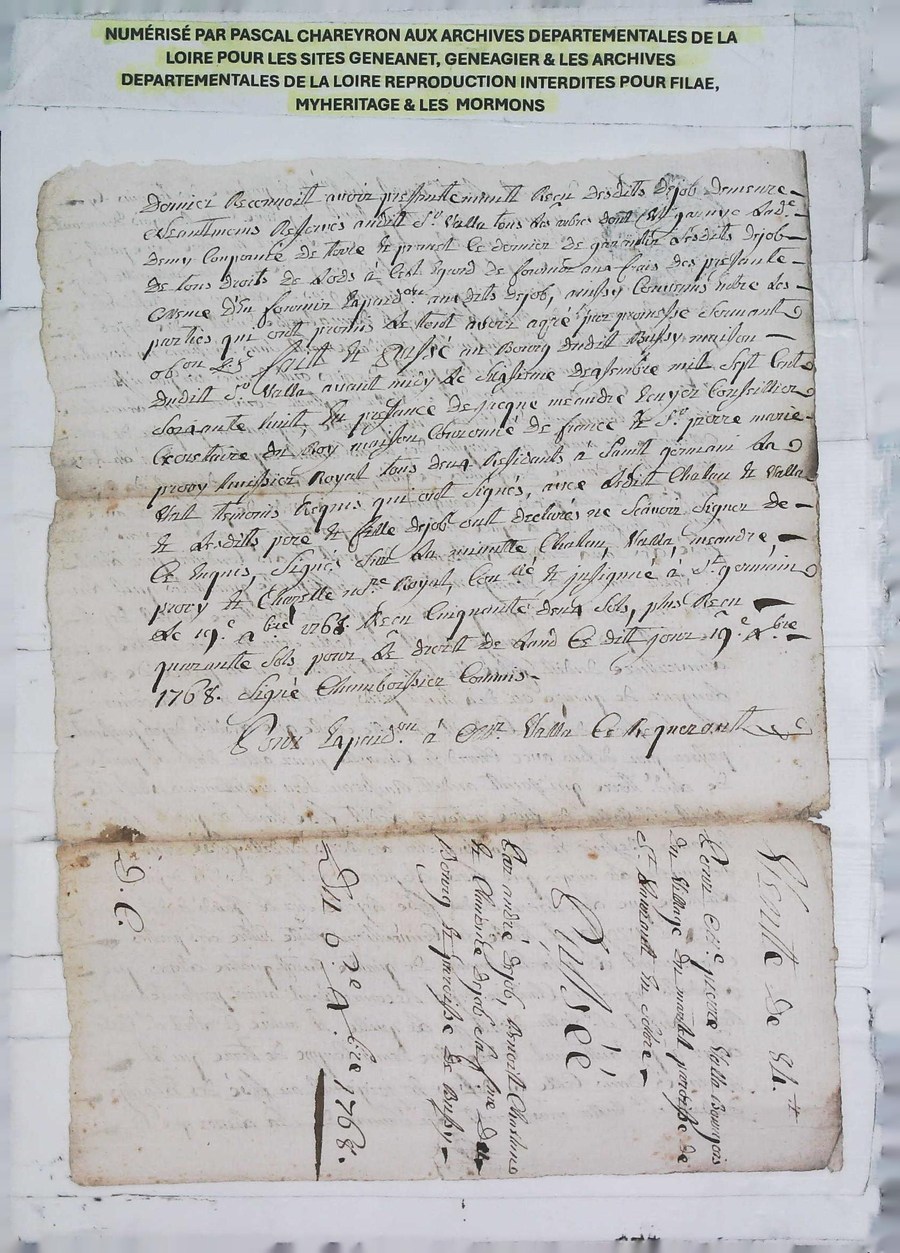 NUMÉRISÉ PAR PASCAL CHAREYRON AUX ARCHIVES DEPARTEMENTALES DE LA
LOIRE POUR LES SITES GENEANET, GENEAGIER & LES ARCHIVES
DEPARTEMENTALES DE LA LOIRE REPRODUCTION INTERDITES POUR FILAE,
MYHERITAGE & LES MORMONS
dernier Reconnoit avoir presentement Reçu desdits dejob demeure
Neantmoins Reservés audit Sr. Valla tous les arbres dont est garnye lade.
demy couponté de terre et promet ce dernier de garantir lesdits dejob
de tous droits de Lods à cest Egard de fournir aux frais des presente
mesme d'En fournir Expedon. auxdits dejob, ainssy Convenus entre les
parties qui ont promis et avoir agré par promesse Sermant
obon &c fait et passé au Bourg dudit Bussy maison
dudit Sr. Valla avant midy le Sixsieme dexsembre mil Sept Cent
Soixante huit, En presance de jacque meandre Ecuyer Conseillier
Secretaire du Roy maison Couronne de france et Sr. pierre marie
provy huissier Royal tous deux Residants à Saint germain La
Val temoins Requis qui ont Signés, avec ledit Chalan et Valla
et lesdits pere et fille dejob ont declarés ne Scavoir Signer de
Ce Enquis, Signés Sur La minutte Chalan, Valla, meandre,
provy et Chazelle nore. Royal, Con lé et insignué à St. germain
le 19e. xbre 1768. Reçu Cinquante deux Sols, plus Reçu
quarante Sols pour le droit de Cand Ce dit jour 19e. xbre
1768. Signé Chamboissier Commis
Pour Expedon. à Valla Ce Requerant
Vente de 84.#
Pour Me. pierre Valla Bourgeois
du Village du parroisse de
St.
Passée
Par andré dejob, Benoitt Chaslans
et Claudine dejob sa femme du
Bourg et parroisse de Bussy
Du 6e. xbre 1768.
D. C.